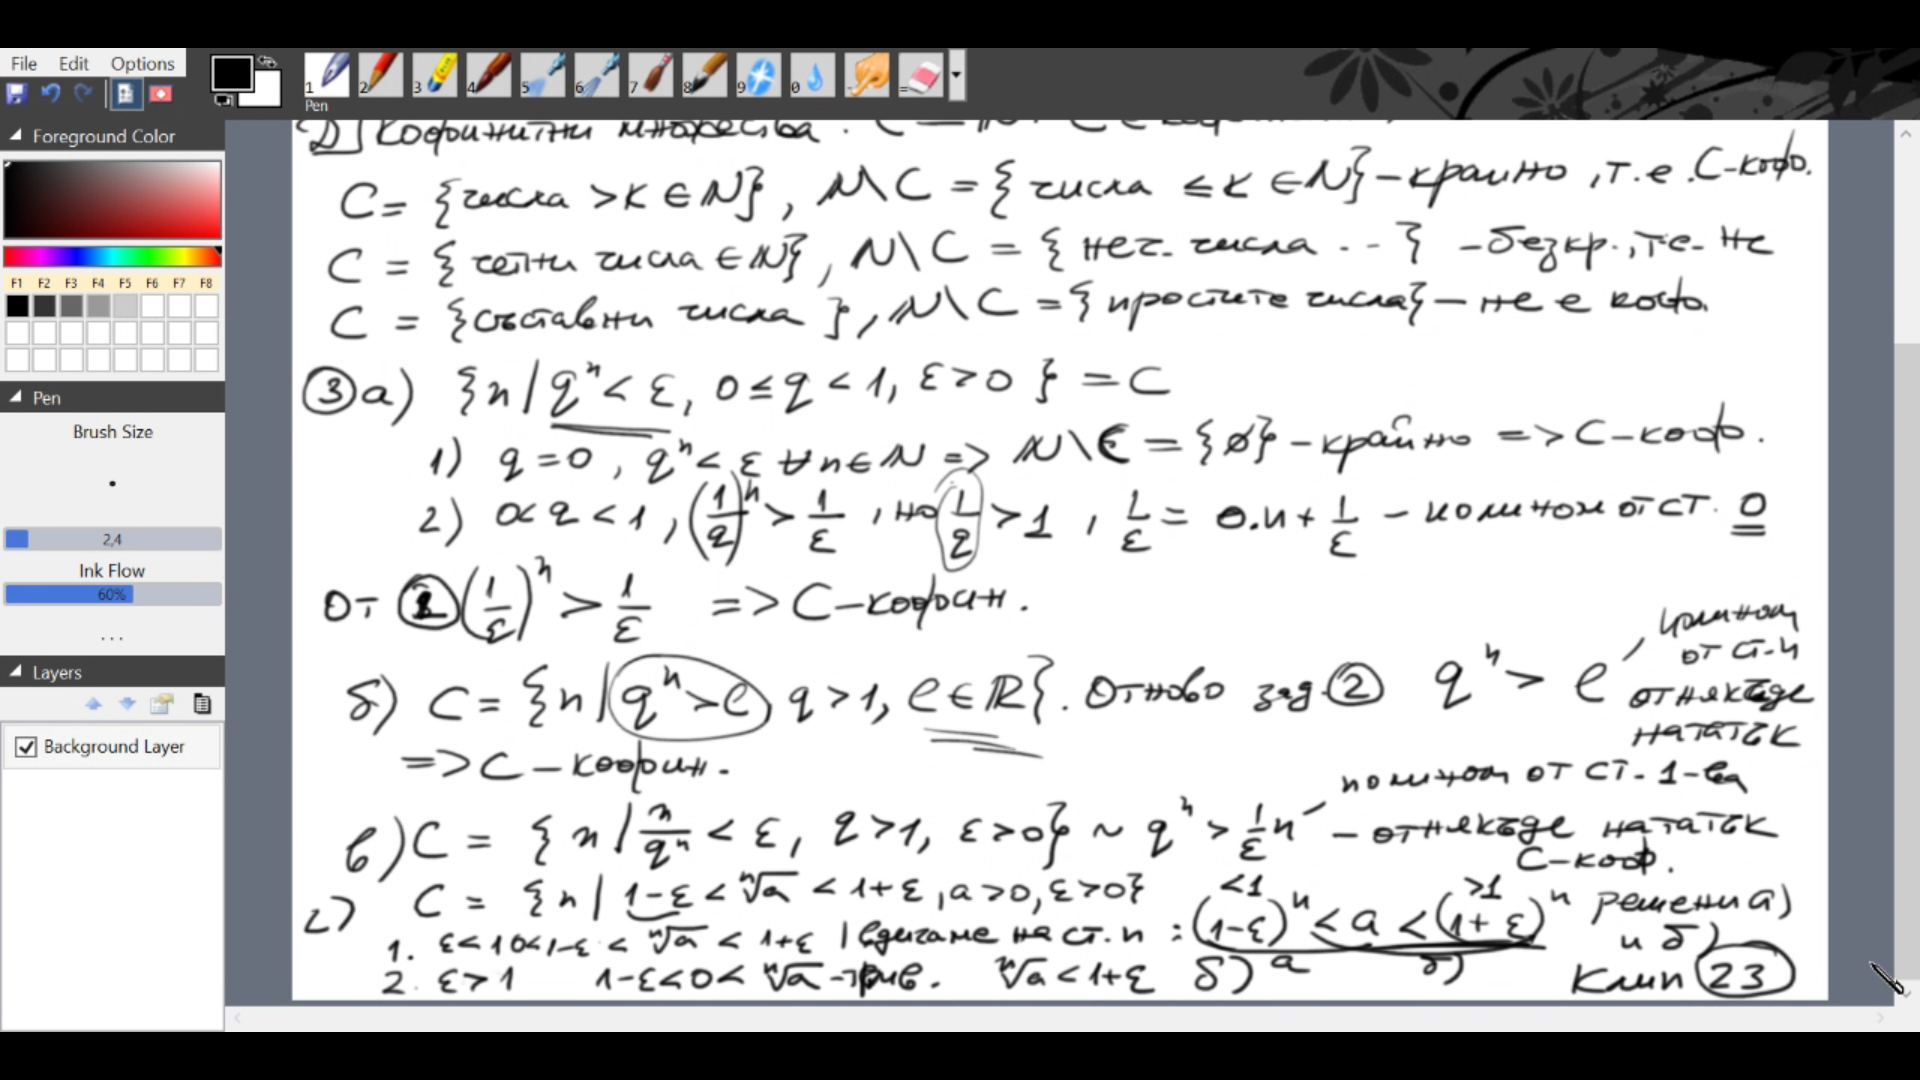 File Edit Options
1 2 3 4 5 6 7 8 9 0 - =
Pen
Foreground Color
F1 F2 F3 F4 F5 F6 F7 F8
Pen
Brush Size
2,4
Ink Flow
60%
...
Layers
Background Layer
Кофинитни множества.
C = {числа > K ∈ N}, N\C = {числа ≤ K ∈ N} - крайно, т.е. C-кофо.
C = {четни числа ∈ N}, N\C = {неч. числа ..} - безкр., т.е. не
C = {съставни числа}, N\C = {простите числа} - не е кофо.
③ а) {n | qⁿ < ε, 0 ≤ q < 1, ε > 0} = C
1) q = 0, qⁿ < ε ∀n ∈ N => N\C = {ø} - крайно => C-коф.
2) 0 < q < 1, (1/q)ⁿ > 1/ε, но 1/q > 1, 1/ε = 0.n + 1/ε - полином от ст. 0
От (1/ε)ⁿ > 1/ε => C-кофин.
б) C = {n | qⁿ > e, q > 1, e ∈ R}. Отново зад. ② qⁿ > e
от ст.
отнякъде
нататък
=> C - кофин.
полином от ст. 1-ва
в) C = {n | n/qⁿ < ε, q > 1, ε > 0} ~ qⁿ > 1/ε n - отнякъде нататък
C-коф.
г) C = {n | 1-ε < ⁿ√a < 1+ε, a > 0, ε > 0}
<1 >1
1. ε < 1 0 < 1-ε < ⁿ√a < 1+ε | вдигаме на ст. n : (1-ε)ⁿ < a < (1+ε)ⁿ решени а)
и б)
2. ε > 1 1-ε < 0 < ⁿ√a - ⁿ√a < 1+ε б) а б) Клип 23